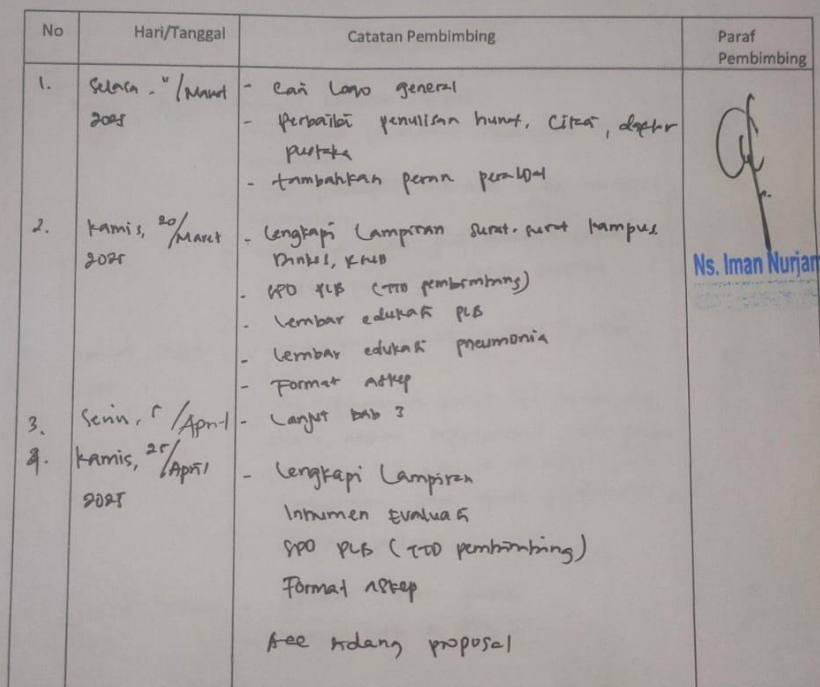 No Hari/Tanggal Catatan Pembimbing Paraf Pembimbing
1. Selasa, 11/Maret 2025
- Cari Logo general
- Perbaiki penulisan huruf, citasi, daftar
pustaka
- tambahkan peran perawat
2. Kamis, 20/Maret 2025
- Lengkapi Lampiran surat-surat kampus
Dinkes, KMB
- SPO PLB (TTD pembimbing)
- Lembar edukasi PLB
- Lembar edukasi pneumonia
- Format askep
3. Senin, /April - Lanjut bab 3
4. Kamis, 25/April 2025
- Lengkapi Lampiran
Intrumen Evaluasi
SPO PLB (TTD pembimbing)
Format askep
Acc sidang proposal
Ns. Iman Nurjan